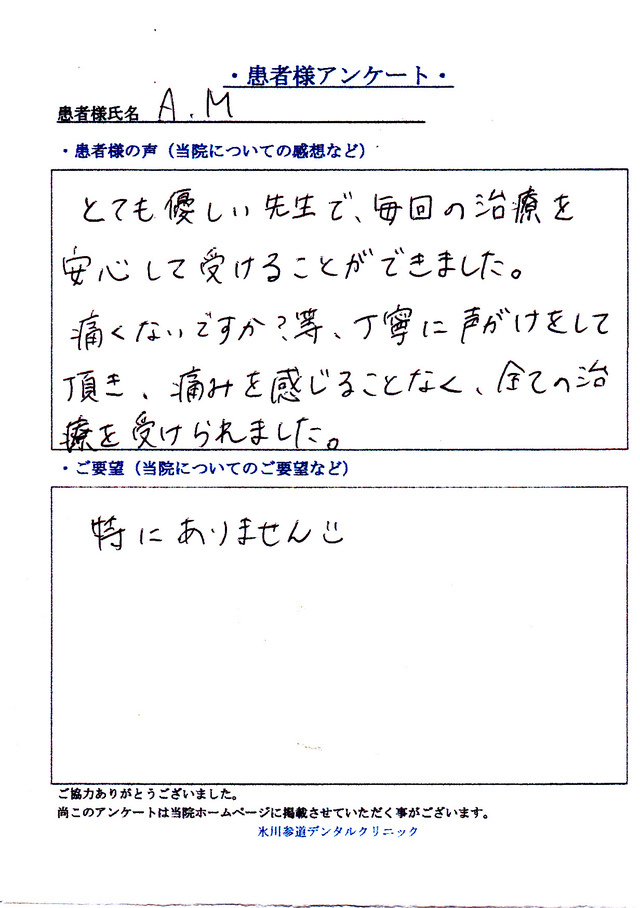 ・患者様アンケート・
患者様氏名 A.M
・患者様の声（当院についての感想など）
とても優しい先生で、毎回の治療を
安心して受けることができました。
痛くないですか？等、丁寧に声がけをして
頂き、痛みを感じることなく、全ての治
療を受けられました。
・ご要望（当院についてのご要望など）
特にありません
ご協力ありがとうございました。
尚このアンケートは当院ホームページに掲載させていただく事がございます。
氷川参道デンタルクリニック